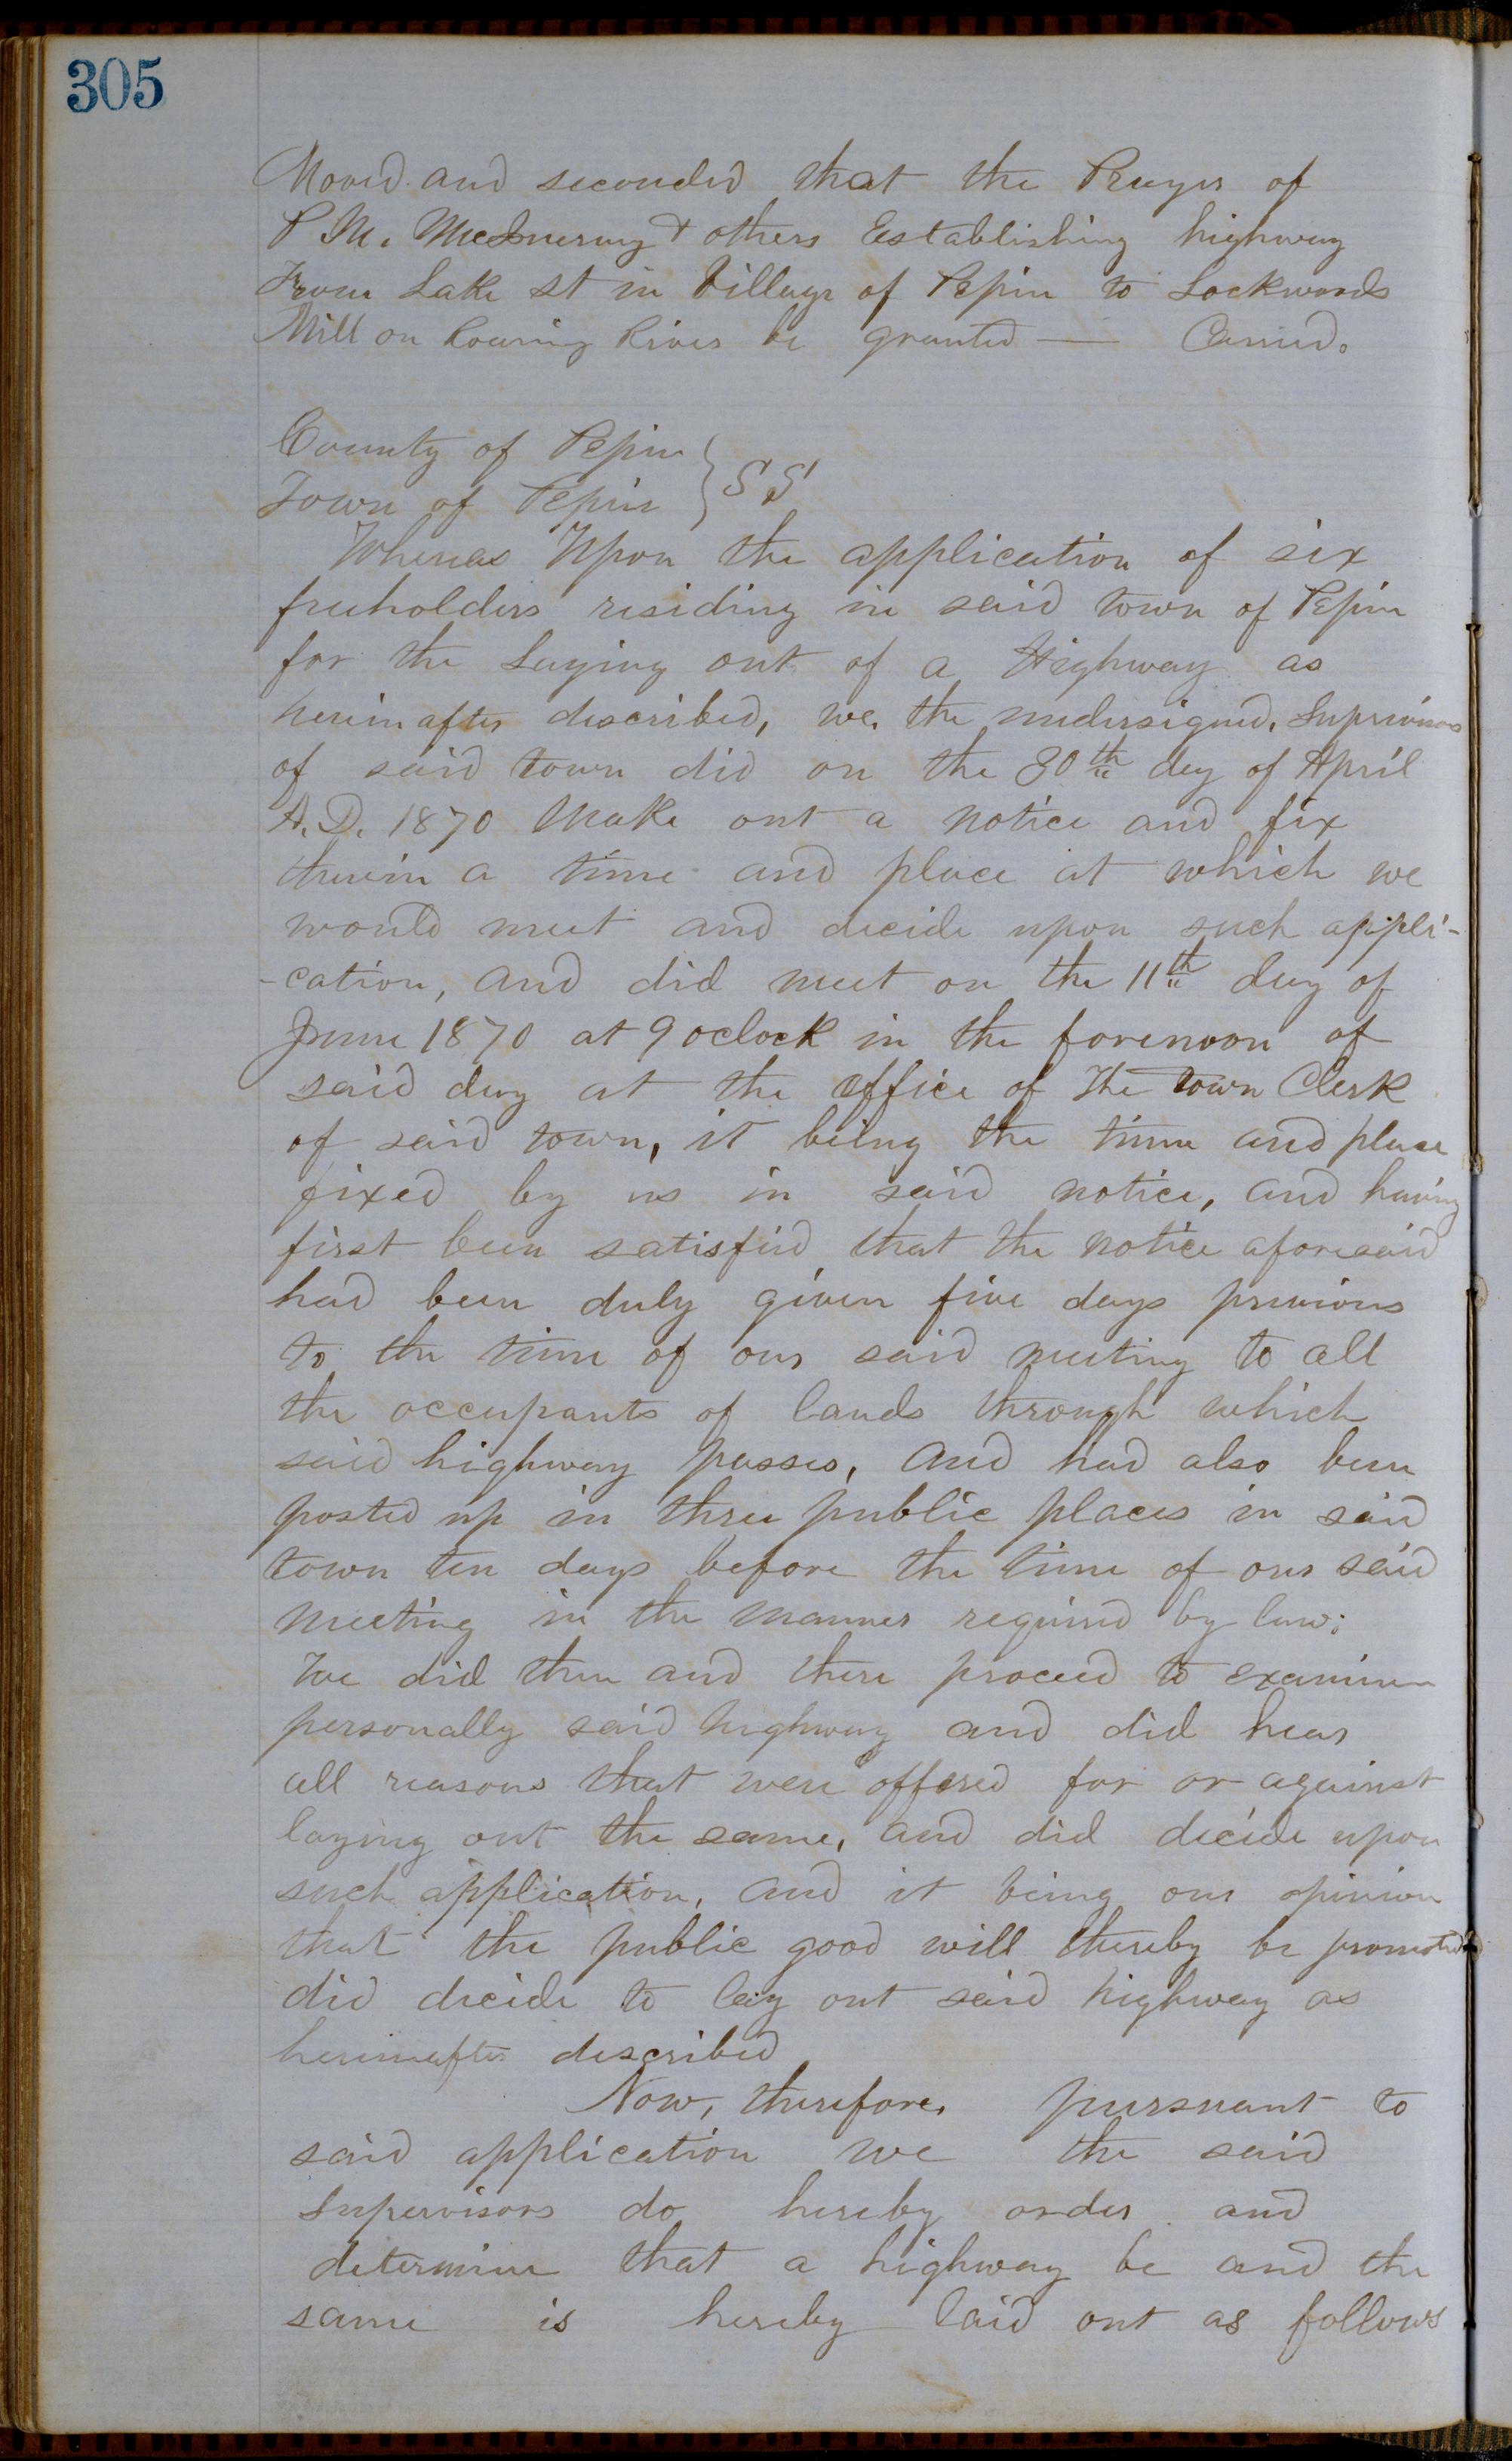 305
Moved and seconded that the Prayer of
P. M. McInerny & others Establishing highway
From Lake st in Village of Pepin to Lockwoods
Mill on Roaring River be granted — Carried.
County of Pepin
Town of Pepin } SS
Whereas Upon the application of six
freeholders residing in said town of Pepin
for the Laying out of a Highway as
hereinafter described, we, the undersigned, Supervisors
of said town did on the 30th day of April
A.D. 1870 make out a notice and fix
therein a time and place at which we
would meet and decide upon such appli-
-cation, and did meet on the 11th day of
June 1870 at 9 oclock in the forenoon of
said day at the office of the town Clerk
of said town, it being the time and place
fixed by us in said notice, and having
first been satisfied that the notice aforesaid
had been duly given five days previous
to the time of our said meeting to all
the occupants of lands through which
said highway passes, and had also been
posted up in three public places in said
town ten days before the time of our said
meeting in the manner required by law;
We did then and there proceed to examine
personally said highway and did hear
all reasons that were offered for or against
laying out the same, and did decide upon
such application, and it being our opinion
that the public good will thereby be promoted
did decide to lay out said highway as
hereinafter described
Now, therefore, pursuant to
said application we the said
Supervisors do hereby order and
determine that a highway be and the
same is hereby laid out as follows